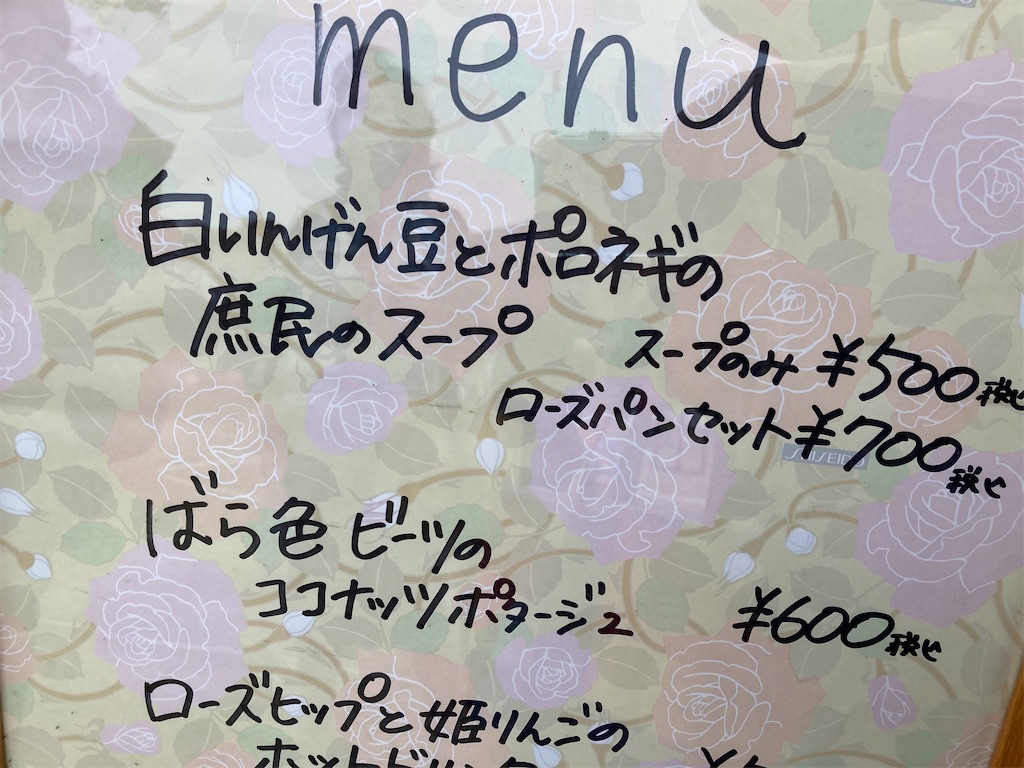 menu
白いんげん豆とポロネギの
庶民のスープ
スープのみ ¥500 税ヒ
ローズパンセット ¥700 税ヒ
SHISEIDO
ばら色 ビーツの
ココナッツポタージ2 ¥600 税ヒ
ローズヒップと姫りんごの
ホットドリンク